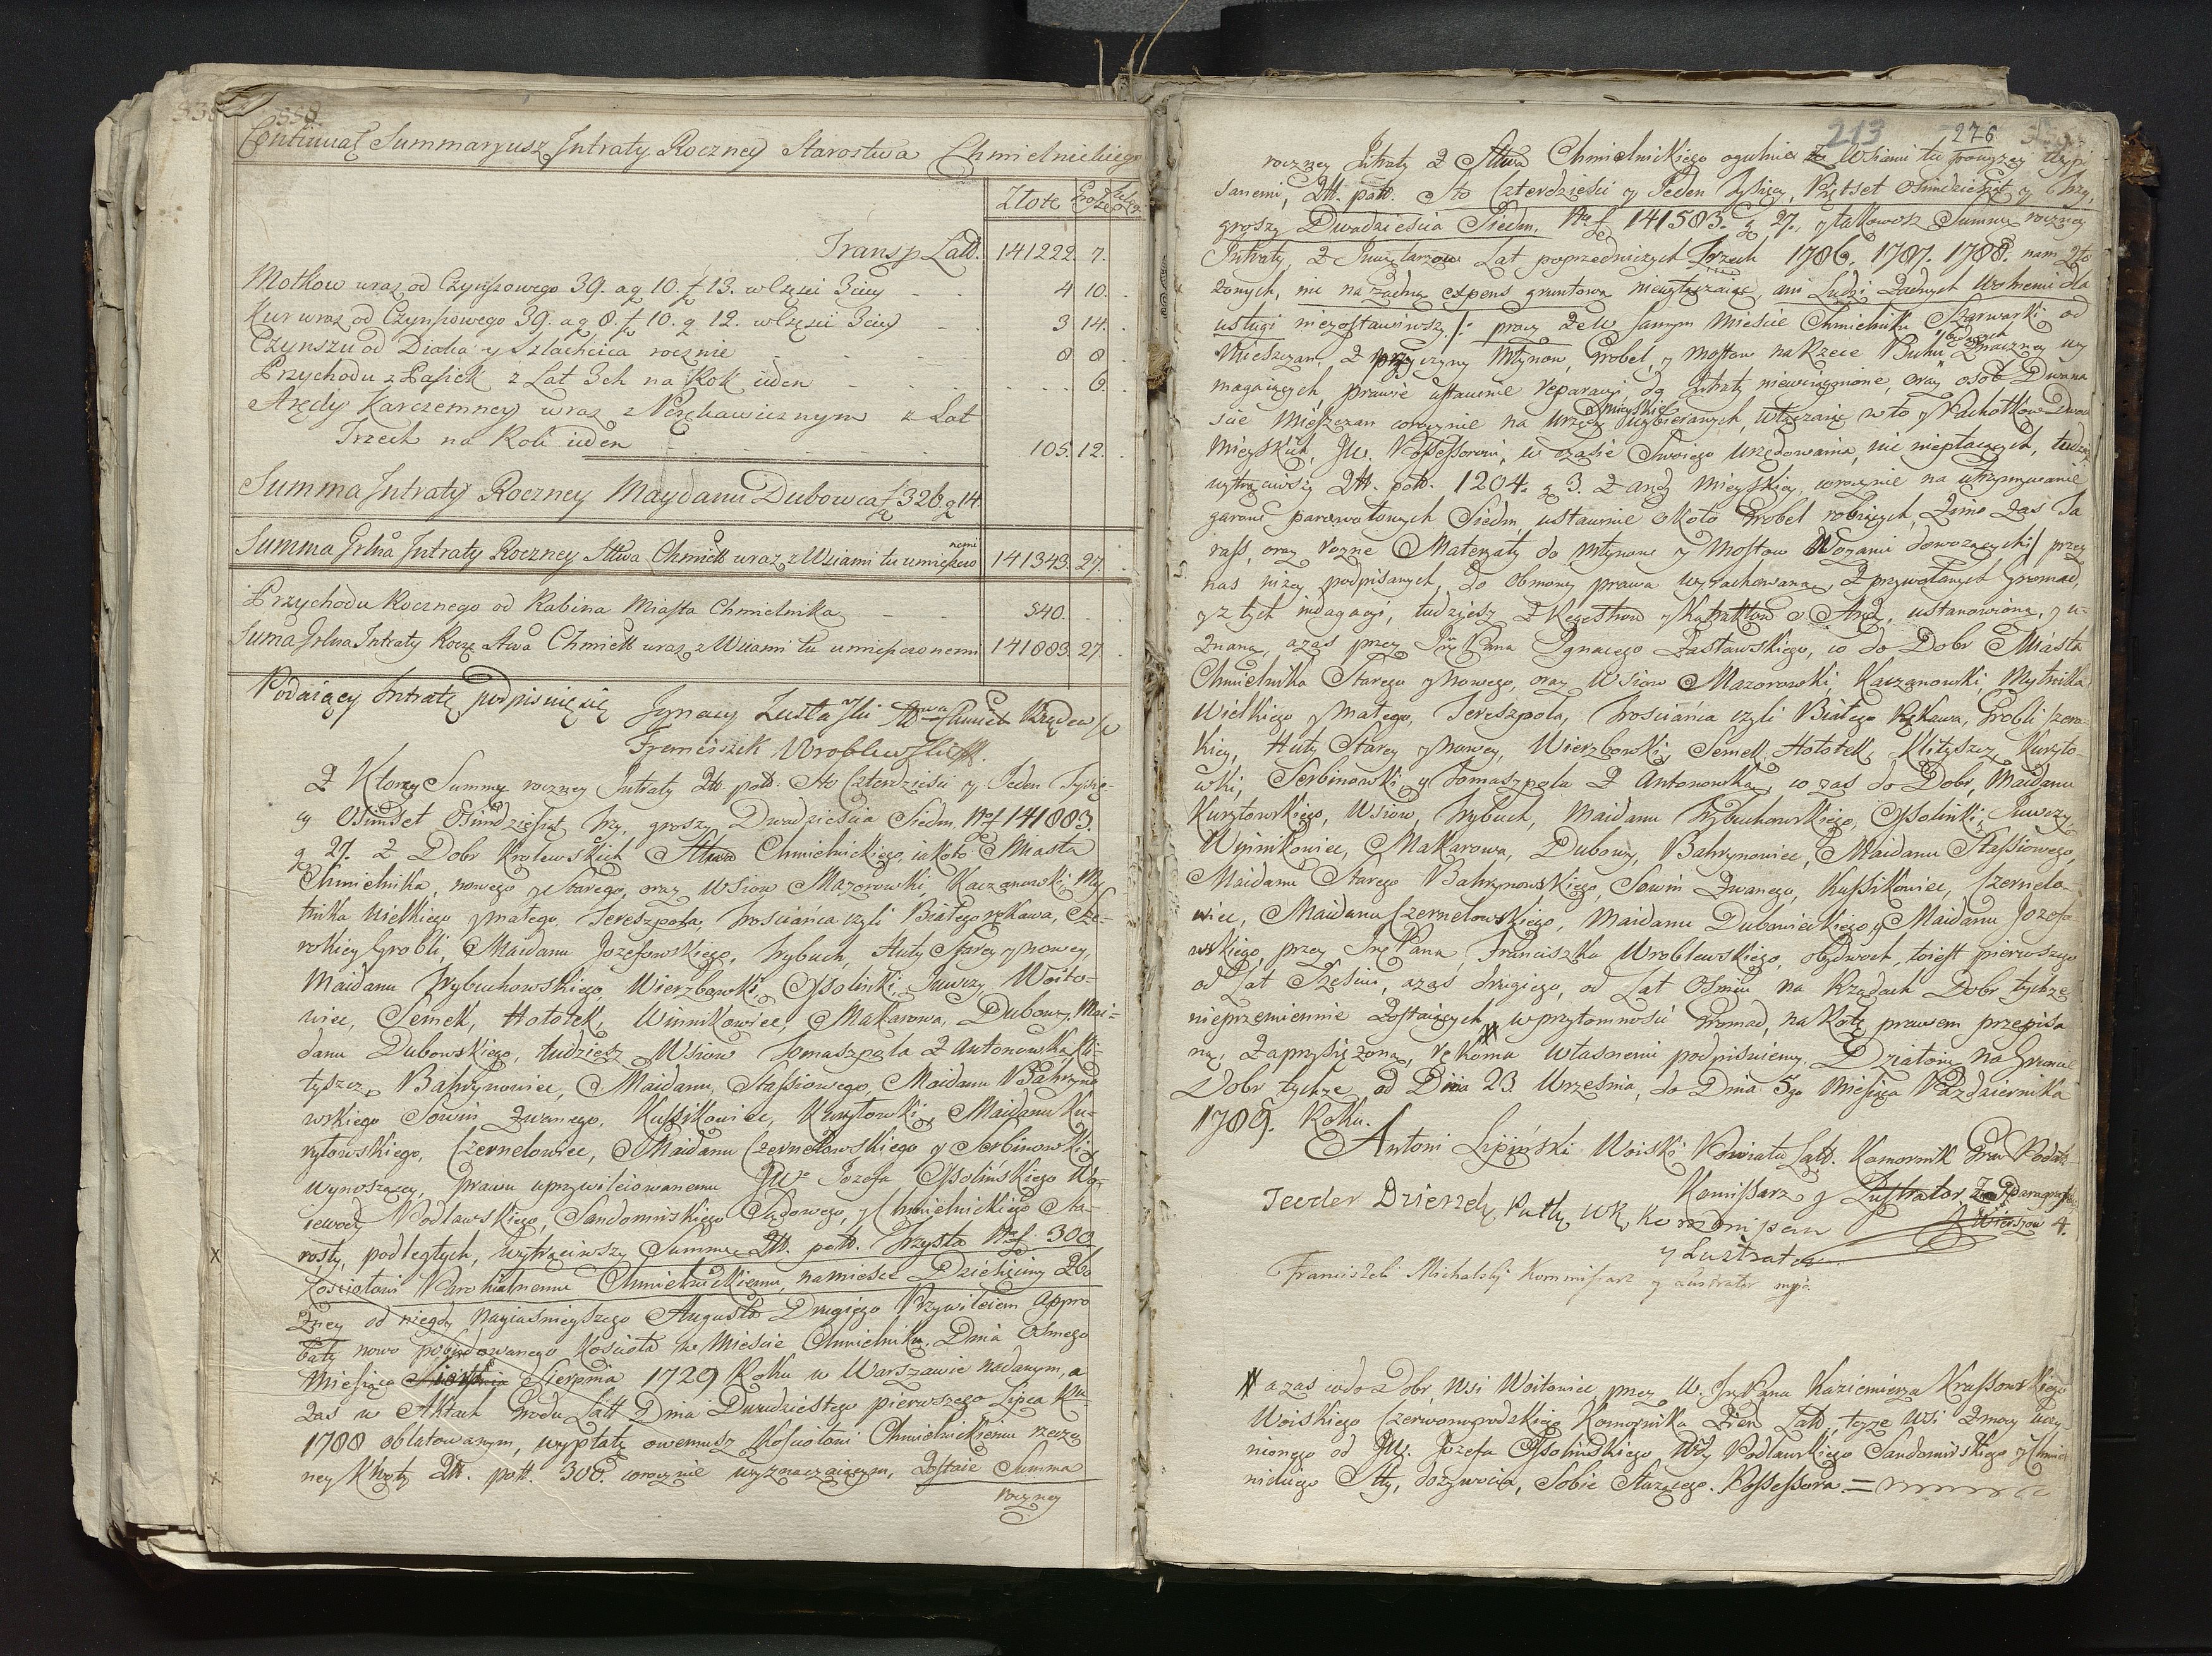 338
358
Continuat Summaryusz Intraty Roczney Starostwa Chmielnickiego
Złote Grosze
Transp Latd. 141222. 7.
Motkow wraz od Czynszowego 39. a g 10. f 13. w Części 3ciey 4 10.
Kur wraz od Czynszowego 39. a g 8. f 10. g 12. w Części 3ciey 3 14.
Czynszu od Diaka y Szlachcica rocznie 8 8
Przychodu z Pasiek z Lat 3ch na Rok ieden 6.
Arędy Karczemney wraz z Perękawicznym z Lat
Trzech na Rok ieden 105. 12.
Summa Intraty Roczney Maydanu Dubowca f 326. g 14.
Summa Grlna Intraty Roczney Sttwa Chmielk wraz z Wsiami tu umieszczo nemi 141343. 27.
Przychodu Rocznego od Rabina Miasta Chmielnika 540.
Suma Grlna Intraty Rocz Sttwa Chmielk wraz z Wsiami tu umieszczonemi 141883. 27.
Podaiący Intratę podpisuię się Ignacy Zasta
Franciszek Wroblewski
Z Ktorey Summy roczney Intraty Złt. pols. Sto Czterdzieści y Jeden Tysię-
cy Ośmset Ośmdziesiąt trzy, groszy Dwadzieścia Siedm, Nro f 141883.
g 27. z Dobr Krolewskich Sttwa Chmielnickiego, iakoto Miasta
Chmielnika, nowego y Starego, oraz Wsiow Mazorowki, Kaczanowki, My-
tnika wielkiego y małego, Tereszpola, Trościańca czyli Białego rękawa, Sze-
rokiey Grobli, Maidanu Jozefowskiego, Trybuch, Huty Starey y nowey,
Maidanu Trybuchowskiego, Wierzbowki, Ossolinki, Juwczy, Woito-
wiec, Semek, Hołotek, Winnikowiec, Makarowa, Dubowy, Mai-
danu Dubowskiego, tudziesz Wsiow Tomaszpola z Antonowką, Kli-
tyszcz, Bahrynowiec, Maidanu Stassiowego, Maidanu Bahryno
wskiego Sowin zwanego, Kussikowiec, Kuryłowki, Maidanu Ku-
ryłowskiego, Czernelowiec, Maidanu Czernelowskiego y Serbinowki,
wynoszącey, prawu uprzywileiowanemu JW. Jozefa Ossolińskiego Wo-
iewody Podlaskiego, Sandomirskiego Sądowego, y Chmielnickiego Sta-
rosty, podległych, wytrąciwszy Summę Złt. pols. Trzysta Nro f. 300
Kościołowi Parochialnemu Chmielnickiemu, namieisce Dziesięciny Zbo
żney od niegdy nayiaśnieyszego Augusta Drugiego Przywileiem Appro
baty nowo pobudowanego Kościoła w Mieście Chmielniku, Dnia Osmego
Miesiąca Sierpnia 1729 Roku w Warszawie nadanym, a
zas w Aktach Grodu Latt Dnia Dwudziestego pierwszego Lipca Ru
1788 oblatowanym, wypłatę owemusz Kościołowi Chmielnickiemu rzeczo
ney Kwoty Złt. pols. 300. corocznie wyznaczaiącym, zostaie Summa
roczney
213 276
roczney Intraty z Sttwa Chmielnickiego ogulnie z Wsiami tu powyżey wypi
sanemi, Złt. pols. Sto Czterdzieści y Jeden Tysięcy, Pięćset Ośmdziesiąt y Trzy,
groszy Dwadzieścia Siedm, Nro f 141583. g 27., y takowosz Summę roczney
Intraty, z Inwętarzow Lat poprzedniczych Trzech 1786. 1787. 1788. nam zło
żonych, nic na żadną expens gruntową niewytrącaiąc, ani Ludzi żadnych wolnemi dla
usługi niezostawiwszy /: procz że w samym Mieście Chmielniku Szarwarki od
Mieszczan, z przyczyny Młynow, Grobel, y Mostow na Rzece Buhu będących znaczney wy
magaiących, prawie ustawnie reparacyi, do Intraty niewciągnione, oraz osob Dwana
ście Mieszczan corocznie na Urzędy Mieyskie wybieranych, włączaiąc w to y Pachołkow Dwoch
Mieyskich, JW. Possessorowi, w czasie Swoiego urzędowania, nic niepłacących, tudziesz
wytrąciwszy Złt. pols. 1204. g 3. z Arędy Mieyskiey, corocznie na utrzymywanie
garonie parowołowych Siedm ustawnie około Grobel robiących, Zimą zas Ta
rass, oraz rożne Materyały do Młynow y Mostow Wozami dowożących :/ przez
nas niżey podpisanych, do obmowy prawa wyrachowaną, z przywołanych Gromad,
y z tych indagacyi, tudziesz z Regestrow y Kątraktow o Arędy, ustanowioną, y u-
znaną, azas przez Jmć Pana Ignacego Zastawskiego, co do Dobr Miasta
Chmielnika Starego y Nowego, oraz Wsiow Mazorowki, Kaczanowki, Mytnika
Wielkiego y Małego, Tereszpola, Trościańca czyli Białego Rękawa, Grobli Szero-
kiey, Huty Starey y Nowey, Wierzbowki, Semek, Hołotek, Klityszcz, Kuryło-
wki, Serbinowki, y Tomaszpola z Antonowką, co zas do Dobr, Maidanu
Kuryłowskiego, Wsiow, Trybuch, Maidanu Trybuchowskiego, Ossolinki, Juwczy,
Winnikowiec, Makarowa, Dubowy, Bahrynowiec, Maidanu Stassiowego,
Maidanu Starego Bahrynowskiego, Sowin zwanego, Kussikowiec, Czernelo-
wiec, Maidanu Czernelowskiego, Maidanu Dubowieckiego, y Maidanu Jozefo
wskiego, przez Jmć Pana Franciszka Wroblewskiego, obydwoch, toiest pierwszego
od Lat Sześciu, azas drugiego, od Lat Osmiu na Rządach Dobr tychże
nieprzemiennie zostaiących # w przytomności Gromad, na Rotę prawem przepisa
ną, zaprzysiężoną, rękoma własnemi podpisuiemy. Działono na Gruncie
Dobr tychże od Dnia 23 Września, do Dnia 5go Miesiąca Pazdziernika
1789. Roku.
Antoni Lipiński Woiski Powiatu Latt. Komornik Gran Podol
Komissarz y Lustrator
Wierszow 4.
Teoder Dzierzek
y Lustrator
Franciszek Michalski Kommissarz y Lustrator mpr.
# azas codo Dobr, Wsi Woitowiec, przez W. Jmć Pana Kazimierza Krassowskiego
Woiskiego Czerwonogrodzkiego Komornika Ziem Latt, teyże Wsi z mocy uczy
nionego od JW. Jozefa Ossolińskiego Wdy Podlaskiego Sandomirskiego y Chmiel
nickiego Stty, dożywocia, Sobie Służącego Possessora. =